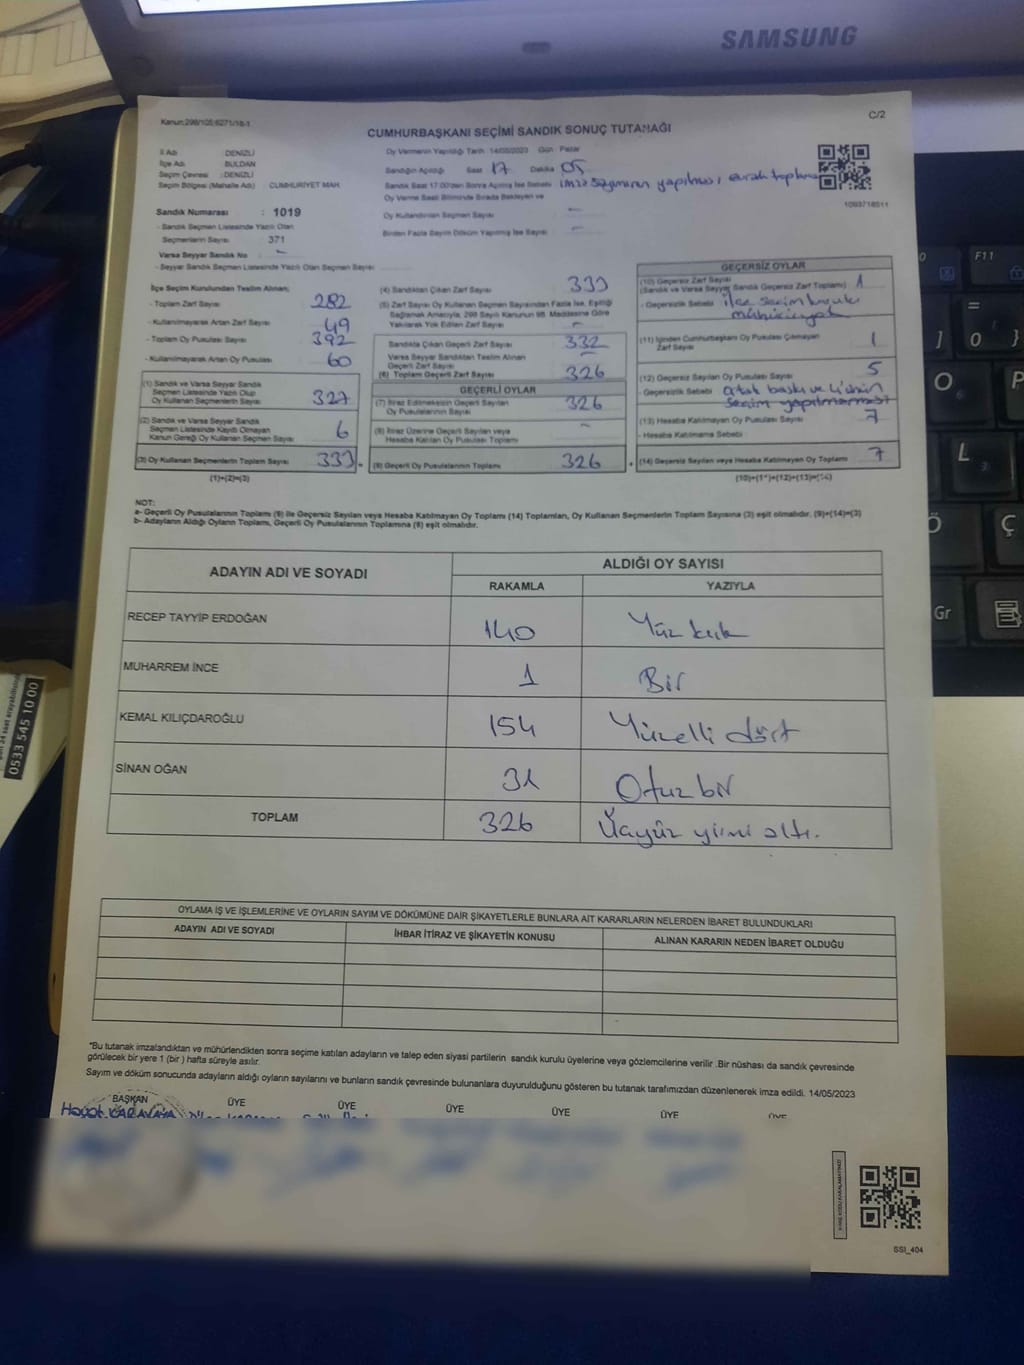 SAMSUNG
Kanun:298/105;6271/18-1
C/2
CUMHURBAŞKANI SEÇİMİ SANDIK SONUÇ TUTANAĞI
İl Adı DENİZLİ
İlçe Adı BULDAN
Seçim Çevresi : DENİZLİ
Seçim Bölgesi (Mahalle Adı) CUMHURİYET MAH.
Oy Vermenin Yapıldığı Tarih : 14/05/2023 Gün : Pazar
Sandığın Açıldığı Saat 17 Dakika 05
Sandık Saat 17.00'den Sonra Açılmış İse Sebebi imza sayımının yapılması evrak toplama
Oy Verme Saati Bitiminde Sırada Bekleyen ve
Oy Kullandırılan Seçmen Sayısı -
Birden Fazla Sayım Döküm Yapılmış İse Sayısı -
1093718511
Sandık Numarası : 1019
- Sandık Seçmen Listesinde Yazılı Olan
Seçmenlerin Sayısı 371
Varsa Seyyar Sandık No -
- Seyyar Sandık Seçmen Listesinde Yazılı Olan Seçmen Sayısı
İlçe Seçim Kurulundan Teslim Alınan;
- Toplam Zarf Sayısı 282
- Kullanılmayarak Artan Zarf Sayısı 49
- Toplam Oy Pusulası Sayısı 392
- Kullanılmayarak Artan Oy Pusulası 60
(1) Sandık ve Varsa Seyyar Sandık
Seçmen Listesinde Yazılı Olup
Oy Kullanan Seçmenlerin Sayısı 327
(2) Sandık ve Varsa Seyyar Sandık
Seçmen Listesinde Kayıtlı Olmayan
Kanun Gereği Oy Kullanan Seçmen Sayısı 6
(3) Oy Kullanan Seçmenlerin Toplam Sayısı 333
(1)+(2)=(3)
(4) Sandıktan Çıkan Zarf Sayısı 333
(5) Zarf Sayısı Oy Kullanan Seçmen Sayısından Fazla İse, Eşitliği
Sağlamak Amacıyla, 298 Sayılı Kanunun 98. Maddesine Göre
Yakılarak Yok Edilen Zarf Sayısı -
Sandıkta Çıkan Geçerli Zarf Sayısı 332
Varsa Seyyar Sandıktan Teslim Alınan
Geçerli Zarf Sayısı -
(6) Toplam Geçerli Zarf Sayısı 326
GEÇERLİ OYLAR
(7) İtiraz Edilmeksizin Geçerli Sayılan
Oy Pusulalarının Sayısı 326
(8) İtiraz Üzerine Geçerli Sayılan veya
Hesaba Katılan Oy Pusulası Toplamı -
(9) Geçerli Oy Pusulalarının Toplamı 326
GEÇERSİZ OYLAR
(10) Geçersiz Zarf Sayısı
(Sandık ve Varsa Seyyar Sandık Geçersiz Zarf Toplamı) 1
- Geçersizlik Sebebi ilçe seçim kurulu
mührü yok
(11) İçinden Cumhurbaşkanı Oy Pusulası Çıkmayan
Zarf Sayısı 1
(12) Geçersiz Sayılan Oy Pusulası Sayısı 5
- Geçersizlik Sebebi ortak baskı ve
seçim yapılmaması
(13) Hesaba Katılmayan Oy Pusulası Sayısı 7
- Hesaba Katılmama Sebebi
(14) Geçersiz Sayılan veya Hesaba Katılmayan Oy Toplamı 7
(10)+(11)+(12)+(13)=(14)
NOT:
a- Geçerli Oy Pusulası Toplamı (9) ile Geçersiz Sayılan veya Hesaba Katılmayan Oy Toplamı (14) Toplamları, Oy Kullanan Seçmenlerin Toplam Sayısına (3) eşit olmalıdır. (9)+(14)=(3)
b- Adayların Aldığı Oyların Toplamı, Geçerli Oy Pusulalarının Toplamına (9) eşit olmalıdır.
ADAYIN ADI VE SOYADI
ALDIĞI OY SAYISI
RAKAMLA YAZIYLA
RECEP TAYYİP ERDOĞAN 140 Yüz kırk
MUHARREM İNCE 1 Bir
KEMAL KILIÇDAROĞLU 154 Yüzelli dört
SİNAN OĞAN 31 Otuz bir
TOPLAM 326 Üçyüz yirmi altı.
OYLAMA İŞ VE İŞLEMLERİNE VE OYLARIN SAYIM VE DÖKÜMÜNE DAİR ŞİKAYETLERLE BUNLARA AİT KARARLARIN NELERDEN İBARET BULUNDUKLARI
ADAYIN ADI VE SOYADI İHBAR İTİRAZ VE ŞİKAYETİN KONUSU ALINAN KARARIN NEDEN İBARET OLDUĞU
"Bu tutanak imzalandıktan ve mühürlendikten sonra seçime katılan adayların ve talep eden siyasi partilerin sandık kurulu üyelerine veya gözlemcilerine verilir .Bir nüshası da sandık çevresinde
görülecek bir yere 1 (bir ) hafta süreyle asılır.
Sayım ve döküm sonucunda adayların aldığı oyların sayılarını ve bunların sandık çevresinde bulunanlara duyurulduğunu gösteren bu tutanak tarafımızdan düzenlenerek imza edildi. 14/05/2023
BAŞKAN ÜYE ÜYE ÜYE ÜYE ÜYE ÜYE
SSI_404
0533 545 10 00
F11
O
P
L
Ö
Ç
Gr